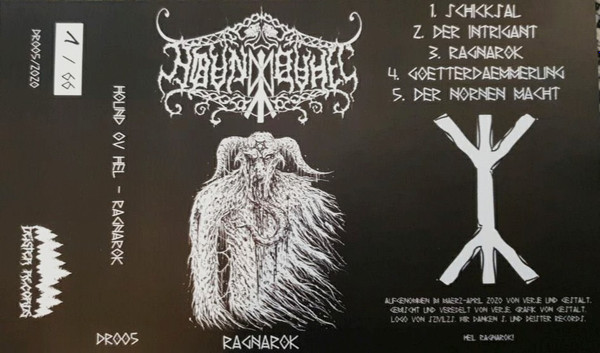 DR005/2020
1/66
HOUND OV HEL - RAGNAROK
DEISTER RECORDS
DR005
HOUND OV HEL
RAGNAROK
1. SCHICKSAL
2. DER INTRIGANT
3. RAGNAROK
4. GOETTERDAEMMERUNG
5. DER NORNEN MACHT
AUFGENOMMEN IM MAERZ-APRIL 2020 VON VERJE UND GESTALT.
GEMISCHT UND VEREDELT VON VERJE. GRAFIK VON GESTALT.
LOGO VON WIR DANKEN S. UND DEISTER RECORDS.
HEIL RAGNAROK!